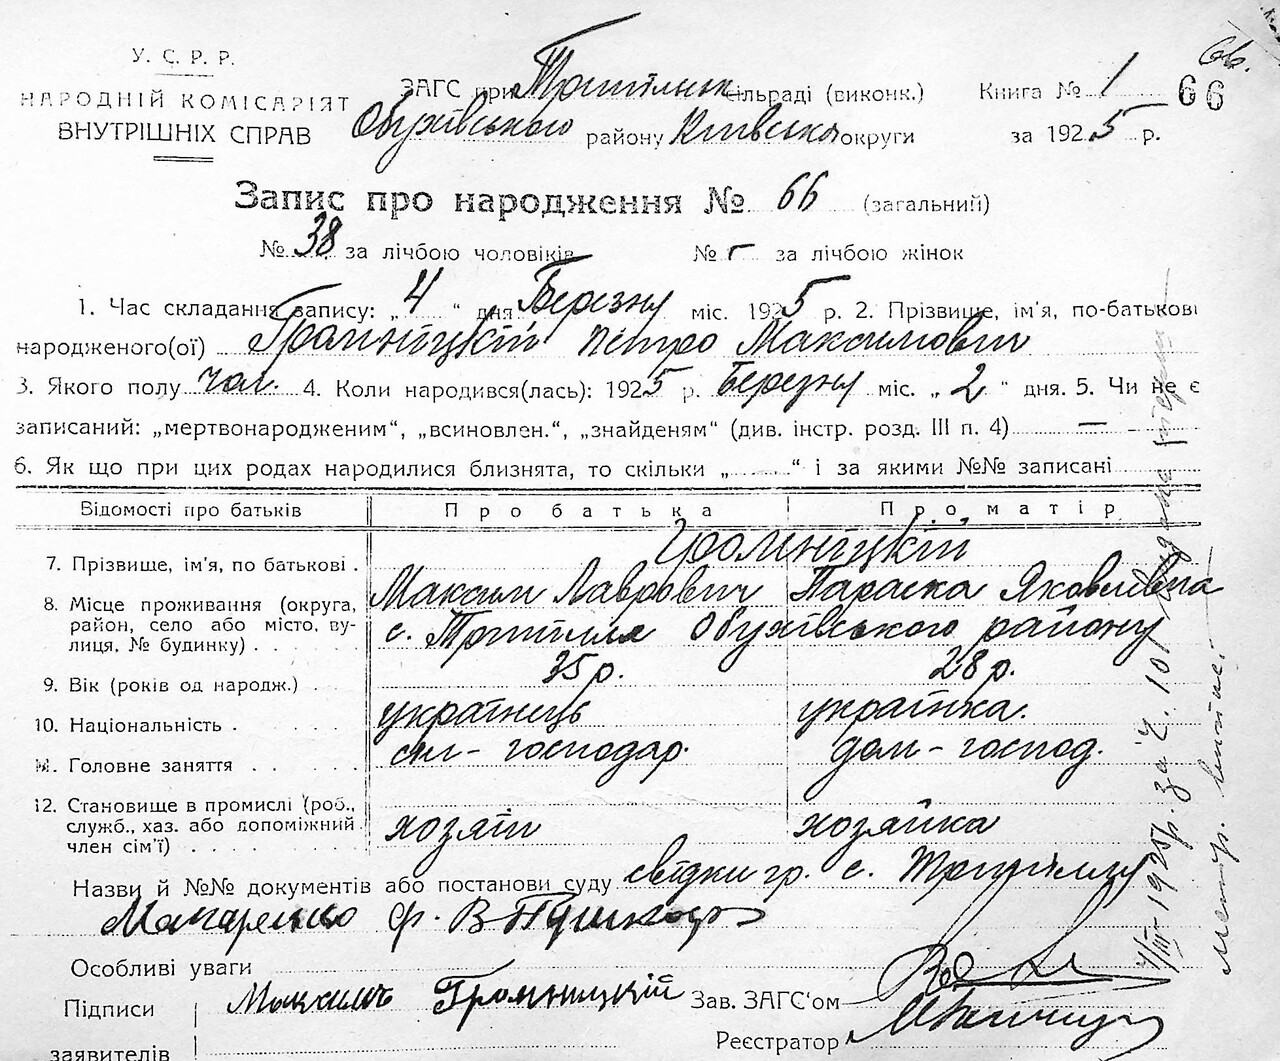 66.
У. С. Р. Р.
НАРОДНІЙ КОМІСАРІЯТ
ВНУТРІШНІХ СПРАВ
ЗАГС при Трипільск сільраді (виконк.) Книга № 1 66
Обухівського району Київськ округи за 1925 р.
Запис про народження № 66 (загальний)
№ 38 за лічбою чоловіків № – за лічбою жінок
1. Час складання запису: „4“ дня Березня міс. 1925 р. 2. Прізвище, ім'я, по-батькові
народженого(ої) Громніцкій Петро Максимович
3. Якого полу чол. 4. Коли народився(лась): 1925 р. Березня міс. „2“ дня. 5. Чи не є
записаний: „мертвонародженим“, „всиновлен.“, „знайденям“ (див. інстр. розд. III п. 4) —
6. Як що при цих родах народилися близнята, то скільки „ “ і за якими №№ записані
Відомості про батьків Про батька Про матір
7. Прізвище, ім'я, по батькові . Громніцкій
Максим Лаврович Параска Яковлівна
8. Місце проживання (округа, район, село або місто, вулиця, № будинку) . . . . . с. Трипілля Обухівського району
9. Вік (років од народж.) . 35 р. 28 р.
10. Національність . українець українка.
11. Головне заняття . . . . сіл-господар дом-господ.
12. Становище в промислі (роб.,
служб., хаз. або допоміжний
член сім'ї) . . . . . . . хозяїн хозяйка
Назви й №№ документів або постанови суду свідки гр. с. Трипілля
Макаренко Ф. В
Особливі уваги
Підписи Максимъ Громницкій Зав. ЗАГС'ом
заявителів Реєстратор
4/III-1925 р. за ч. 101 видана
метр. випис.